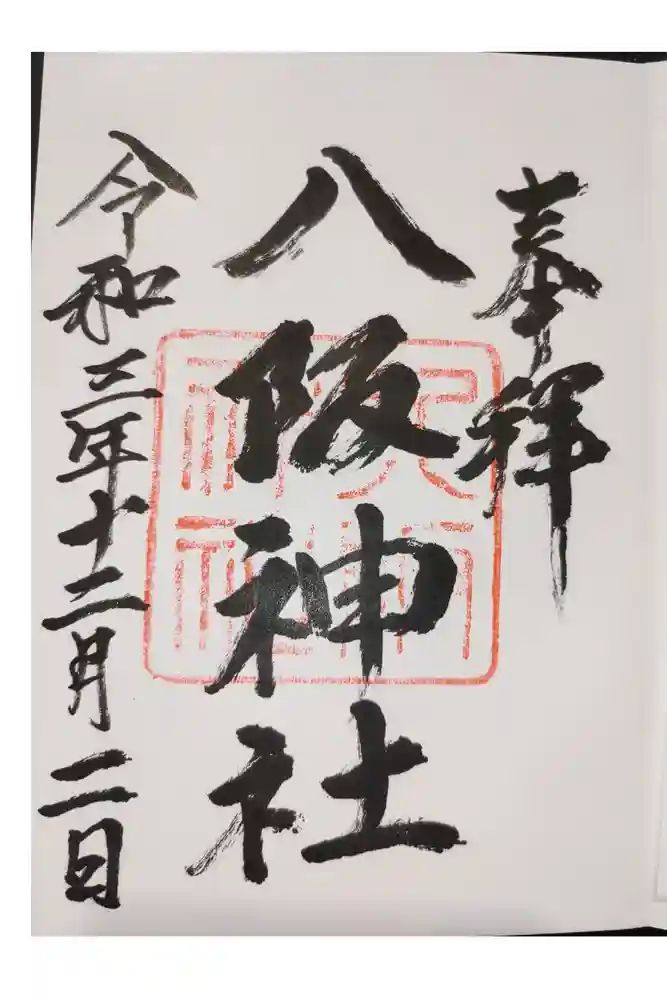 奉拝
八阪神社
令和三年十二月二日